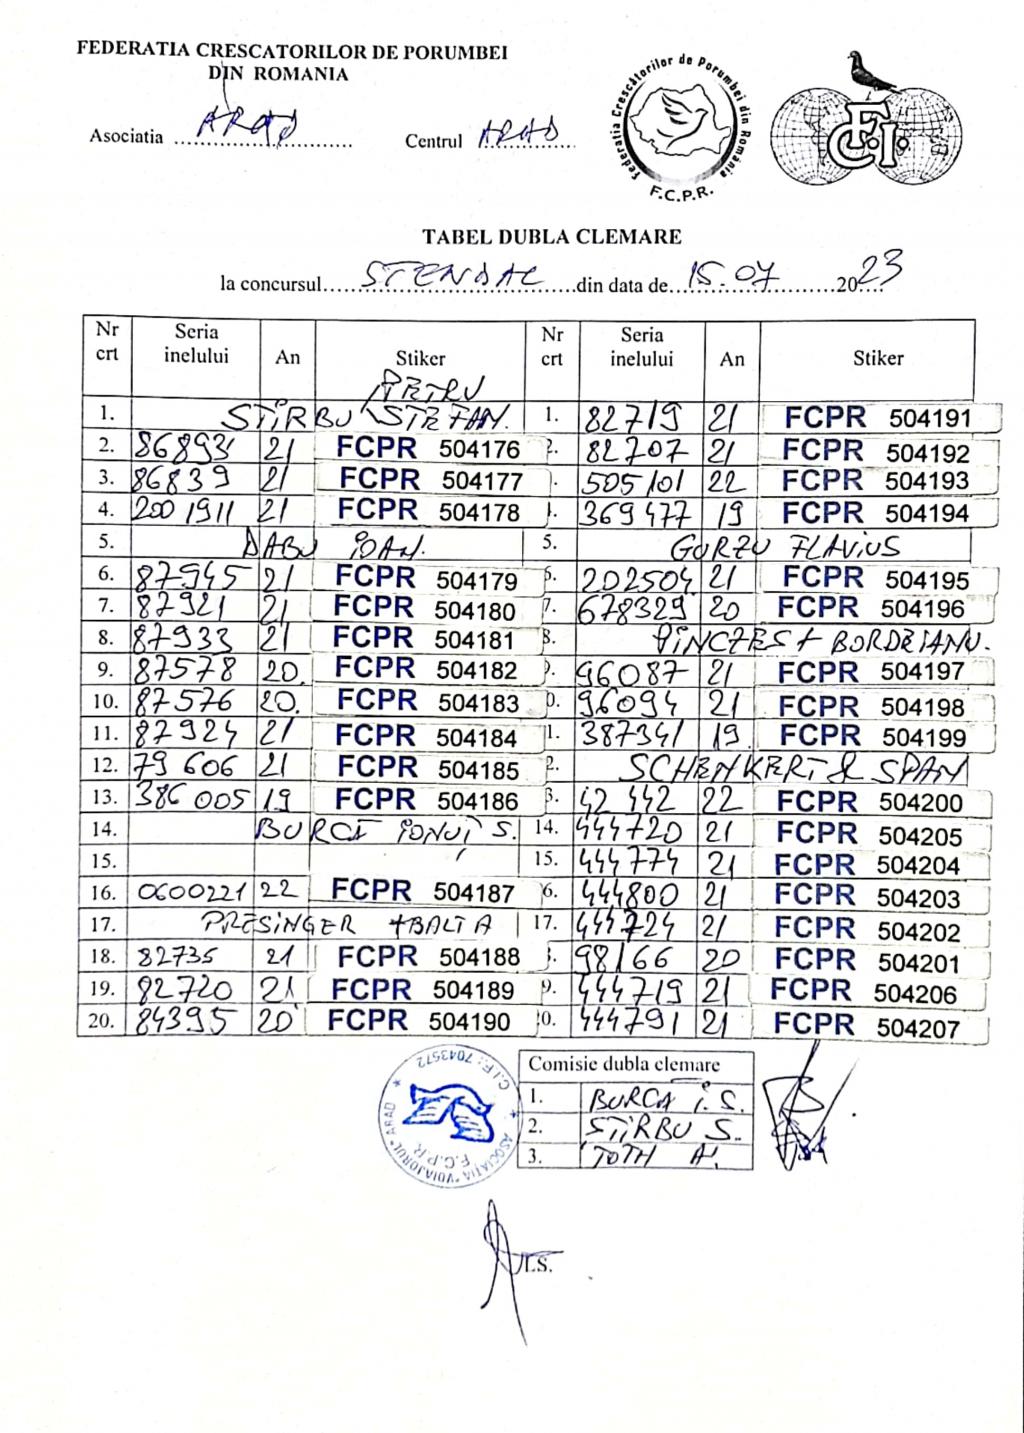 FEDERATIA CRESCATORILOR DE PORUMBEI
DIN ROMANIA
Asociatia ARAD Centrul ARAD
Federatia Crescătorilor de Porumbei din România
F.C.P.R.
F.C.I.
TABEL DUBLA CLEMARE
la concursul STENDAL din data de 15.07 2023
Nr crt Seria inelului An Stiker Nr crt Seria inelului An Stiker
PETRU
1. STIRBU STEFAN. 1. 82719 21 FCPR 504191
2. 868931 21 FCPR 504176 2. 82707 21 FCPR 504192
3. 86839 21 FCPR 504177 . 505101 22 FCPR 504193
4. 2001911 21 FCPR 504178 4. 369477 19 FCPR 504194
5. DABU IOAN. 5. GURZU FLAVIUS
6. 87945 21 FCPR 504179 6. 202504 21 FCPR 504195
7. 87921 21 FCPR 504180 7. 678329 20 FCPR 504196
8. 87933 21 FCPR 504181 8. PINCZES + BORDEIANU.
9. 87578 20. FCPR 504182 9. 96087 21 FCPR 504197
10. 87576 20. FCPR 504183 0. 96094 21 FCPR 504198
11. 87924 21 FCPR 504184 1. 387341 19 FCPR 504199
12. 79 606 21 FCPR 504185 2. SCHENKERT & SPAN
13. 386 005 19 FCPR 504186 3. 42 442 22 FCPR 504200
14. BURCĂ IONUȚ S. 14. 444720 21 FCPR 504205
15. 15. 444774 21 FCPR 504204
16. 0600221 22 FCPR 504187 6. 444800 21 FCPR 504203
17. PRESINGER + BALTA 17. 444724 21 FCPR 504202
18. 82735 21 FCPR 504188 . 98166 20 FCPR 504201
19. 82720 21 FCPR 504189 9. 444719 21 FCPR 504206
20. 84395 20 FCPR 504190 0. 444791 21 FCPR 504207
C.I.F.: 7043572
ASOCIAȚIA "VOIAJORUL" ARAD
F.C.P.R
Comisie dubla clemare
1. BURCĂ I. S.
2. STIRBU S.
3. TOTH A.
L.S.